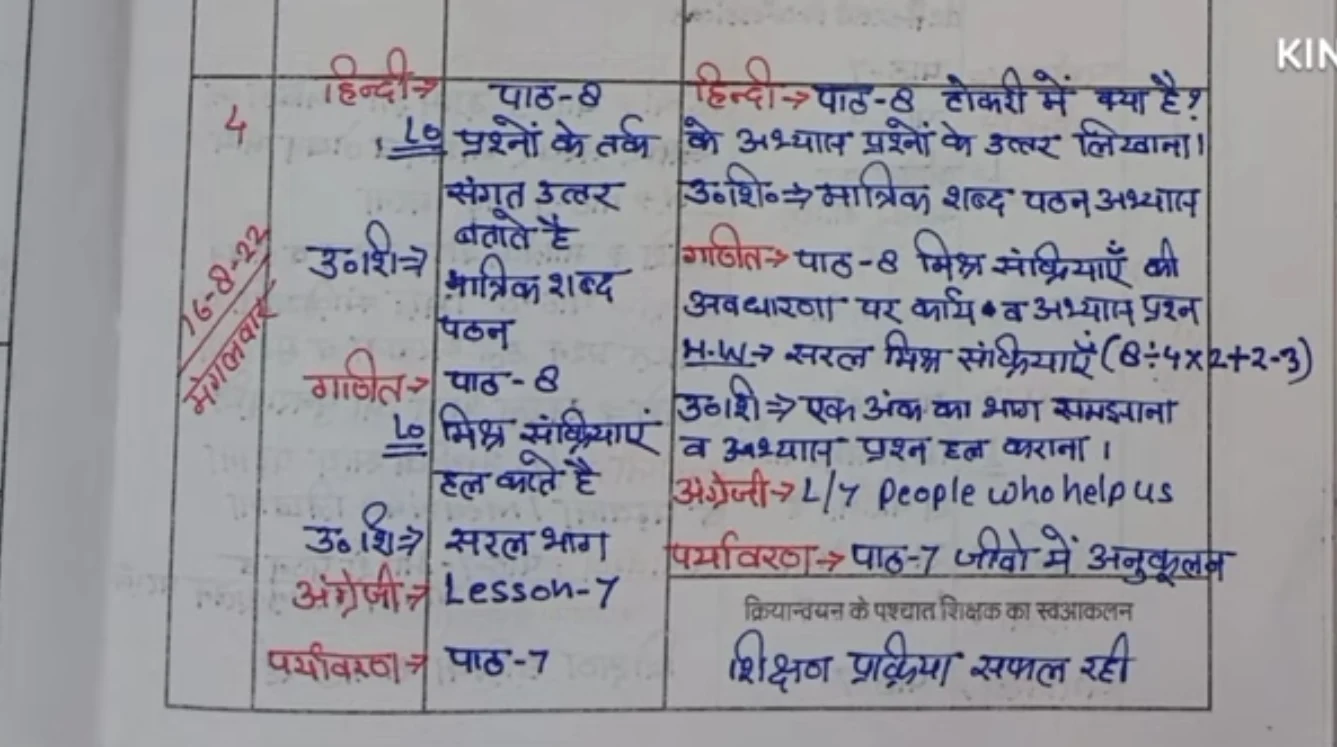 4
16-8-22
मंगलवार
हिन्दी→ पाठ-8
LO प्रश्नों के तर्क
संगत उत्तर
बताते है
उ०शि→
मात्रिक शब्द
पठन
गणित→ पाठ-8
LO मिश्र संक्रियाएं
हल करते है
उ०शि→ सरल भाग
अंग्रेजी→ Lesson-7
पर्यावरण→ पाठ-7
हिन्दी→ पाठ-8 टोकरी में क्या है?
के अभ्यास प्रश्नों के उत्तर लिखाना।
उ०शि०→ मात्रिक शब्द पठन अभ्यास
गणित→ पाठ-8 मिश्र संक्रियाएँ की
अवधारणा पर कार्य व अभ्यास प्रश्न
H.W→ सरल मिश्र संक्रियाएँ (8÷4×2+2-3)
उ०शि→ एक अंक का भाग समझाना
व अभ्यास प्रश्न हल कराना।
अंग्रेजी→ L/7 People who help us
पर्यावरण→ पाठ-7 जीवो में अनुकूलन
क्रियान्वयन के पश्चात शिक्षक का स्वआकलन
शिक्षण प्रक्रिया सफल रही
KIN